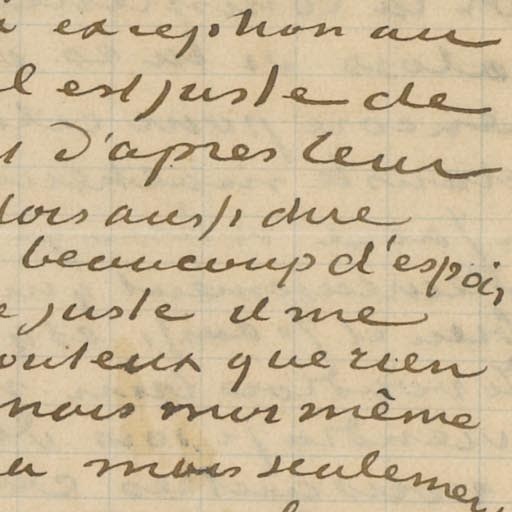 exception au
est juste de
d'apres leur
aussi dire
beaucoup d'espoir
juste il me
que rien
mais moi même
mais seulement